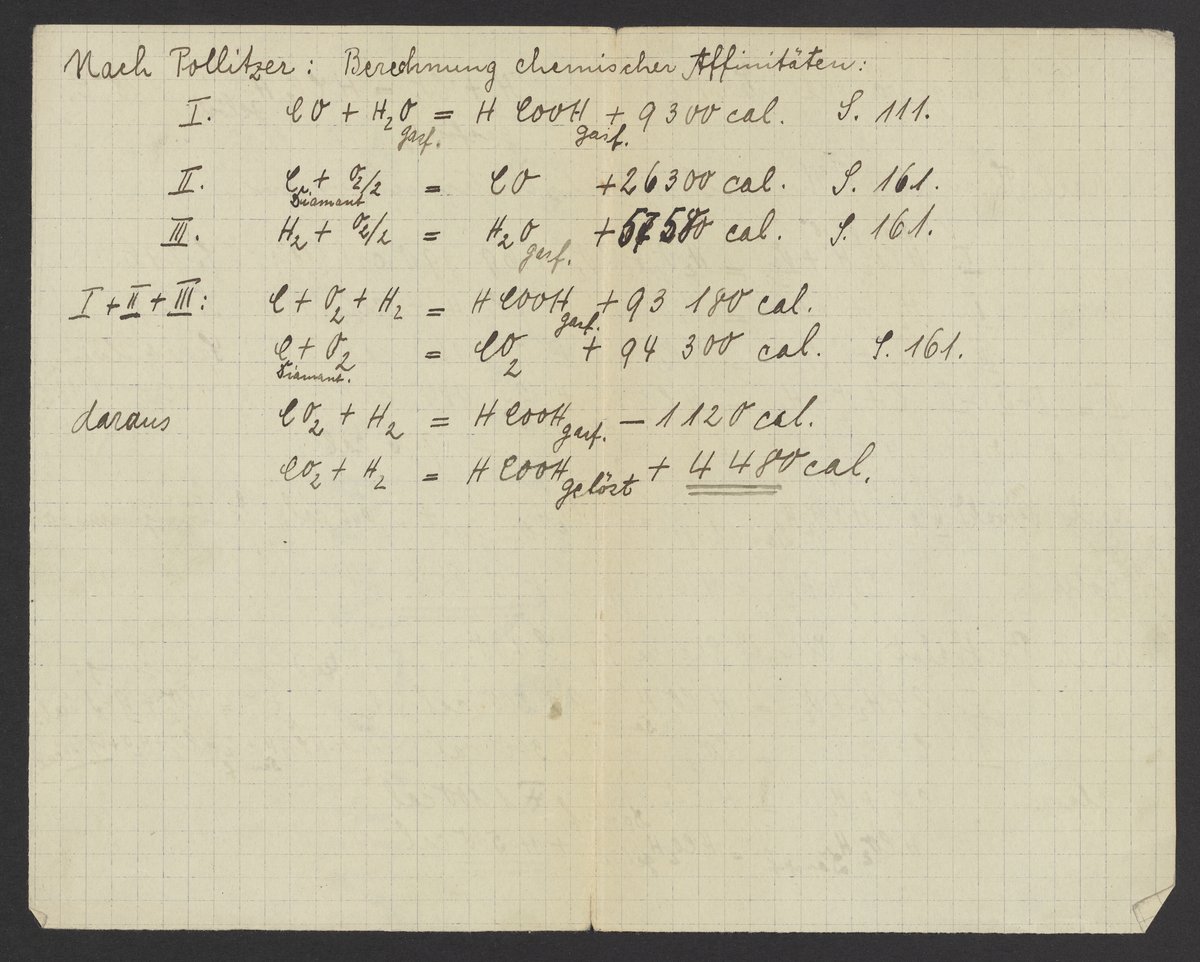 Nach Pollitzer: Berechnung chemischer Affinitäten:
I. CO + H₂O gasf. = HCOOH gasf. + 9300 cal. S. 111.
II. C Diamant + O₂/2 = CO + 26300 cal. S. 161.
III. H₂ + O₂/2 = H₂O gasf. + 57580 cal. S. 161.
I + II + III: C + O₂ + H₂ = HCOOH gasf. + 93 180 cal.
C Diamant. + O₂ = CO₂ + 94 300 cal. S. 161.
daraus CO₂ + H₂ = HCOOH gasf. – 1120 cal.
CO₂ + H₂ = HCOOH gelöst + 4480 cal.